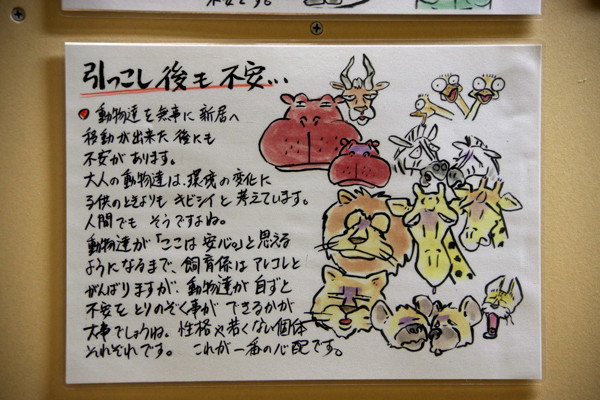 引っこし後も不安...
動物達を無事に新居へ
移動が出来た後にも
不安があります。
大人の動物達は、環境の変化に
子供のときよりもキビシイと考えています。
人間でもそうですよね。
動物達が「ここは安心。」と思える
ようになるまで、飼育係はアレコレと
がんばりますが、動物達が自ずと
不安をとりのぞく事ができるかが
大事でしょうね。性格や若くない個体
それぞれです。これが一番の心配です。